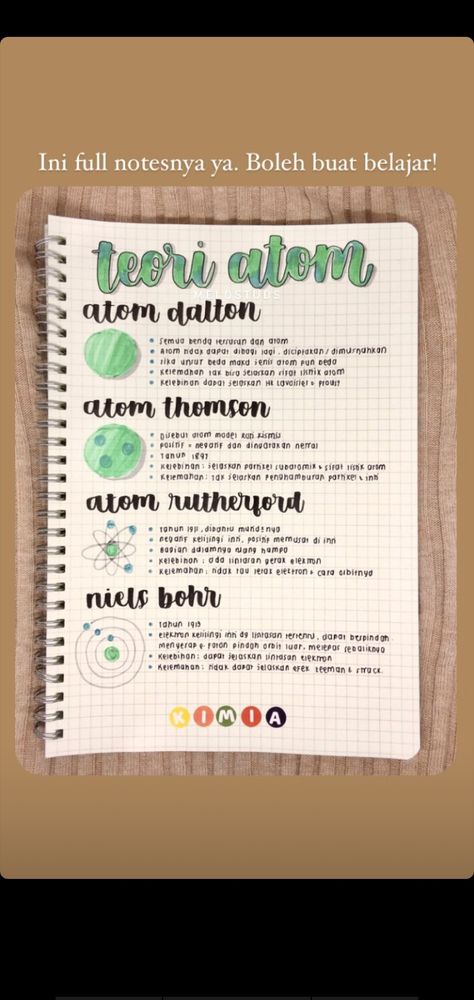 Ini full notesnya ya. Boleh buat belajar!
teori atom
atom dalton
Semua benda tersusun dari atom
Atom tidak dapat dibagi lagi, diciptakan / dimusnahkan
Jika unsur beda maka jenis atom pun beda
Kelemahan tak bisa jelaskan sifat listrik atom
Kelebihan dapat jelaskan HK Lavoisier & Proust
atom thomson
Disebut atom model roti kismis
positif = negatif dan dinyatakan netral
Tahun 1897
Kelebihan : jelaskan partikel subatomik & sifat listrik atom
Kelemahan : tak jelaskan penghamburan partikel & inti
atom rutherford
Tahun 1911, dibantu muridnya
negatif kelilingi inti, positif memusat di inti
Bagian dalamnya ruang hampa
Kelebihan : ada lintasan gerak elektron
Kelemahan : tidak tau letak elektron & cara orbitnya
niels bohr
Tahun 1913
elektron kelilingi inti dg lintasan tertentu, dapat berpindah.
menyerap e foton pindah orbit luar, melepas sebaliknya
Kelebihan : dapat jelaskan lintasan elektron
Kelemahan : tidak dapat jelaskan efek zeeman & strack.
KIMIA